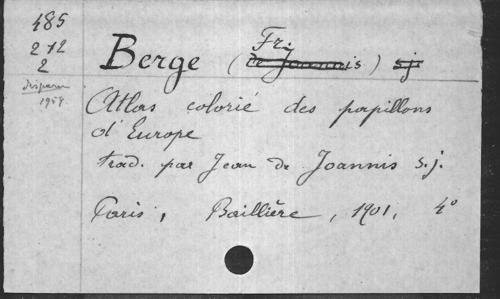 485
212
2
disparu
1958.
Fr.
Berge (de Joannis) sj
Atlas colorié des papillons
d'Europe
trad. par Jean de Joannis s.j.
Paris, Baillière, 1901, 4°